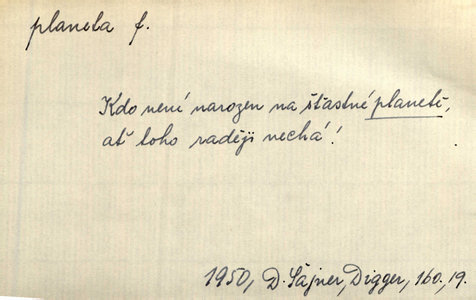 planeta f.
Kdo není narozen na šťastné planetě,
ať toho raději nechá!
1950, D. Šajner, Digger, 160.,19.